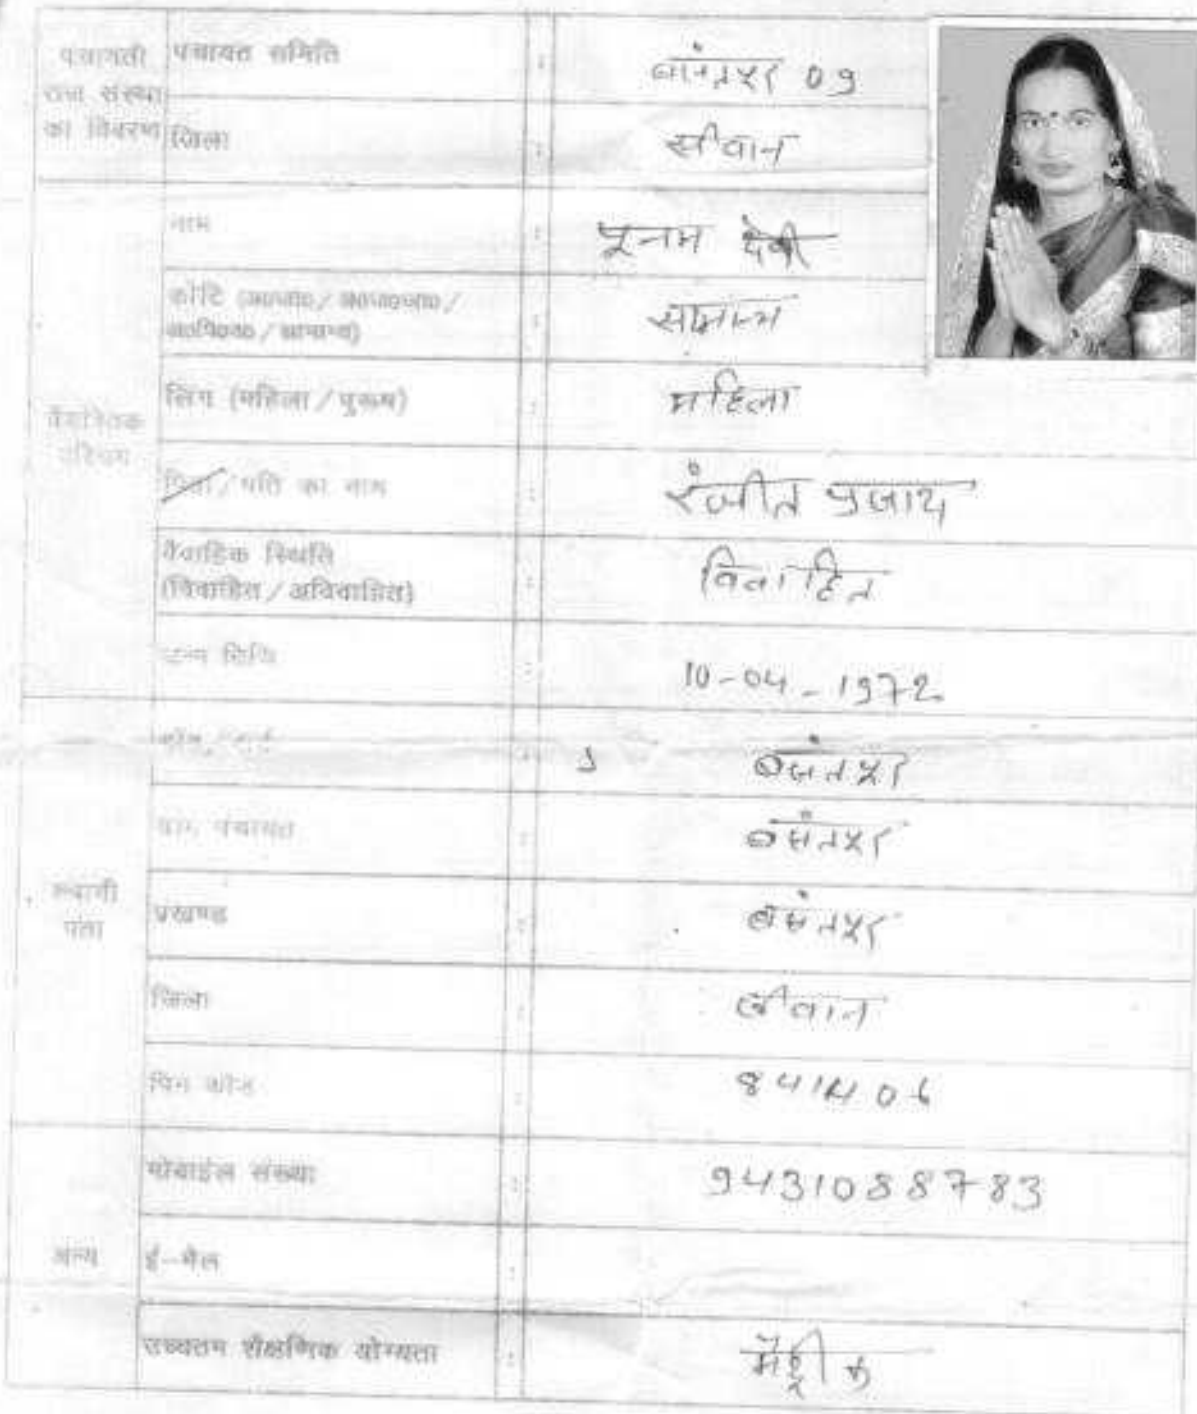 पंचायती राज संस्था का विवरण
पंचायत समिति : बसंतपुर 09
जिला : सीवान
वैयक्तिक परिचय
नाम : पूनम देवी
कोटि (अ०जा०/अ०ज०जा०/
अ०पि०व०/सामान्य) : सामान्य
लिंग (महिला/पुरूष) : महिला
पिता/पति का नाम : रंजीत प्रसाद
वैवाहिक स्थिति
(विवाहित/अविवाहित) : विवाहित
जन्म तिथि : 10-04-1972
स्थायी पता
बसंतपुर
ग्राम पंचायत : बसंतपुर
प्रखण्ड : बसंतपुर
जिला : सीवान
पिन कोड : 841406
अन्य
मोबाईल संख्या : 9431088783
ई-मेल :
उच्चतम शैक्षणिक योग्यता : मैट्रीक